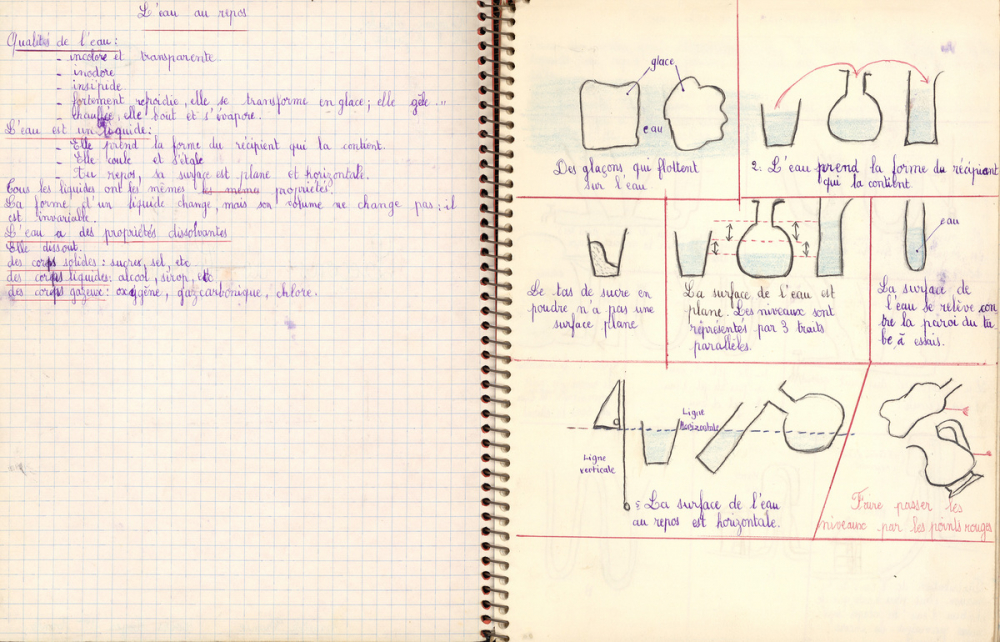 L'eau au repos
Qualités de l'eau:
- incolore et transparente
- inodore
- insipide
- fortement refroidie, elle se transforme en glace; elle gèle...
- chauffée, elle bout et s'évapore.
L'eau est un liquide:
- Elle prend la forme du récipient qui la contient.
- Elle coule et s'étale
- Au repos, sa surface est plane et horizontale.
Tous les liquides ont les mêmes les mêmes propriétés.
La forme d'un liquide change, mais son volume ne change pas; il
est invariable.
L'eau a des propriétés dissolvantes
Elle dissout.
des corps solides: sucre, sel, etc
des corps liquides: alcool, sirop, etc
des corps gazeux: oxygène, gaz carbonique, chlore.
glace
eau
Des glaçons qui flottent
sur l'eau
2. L'eau prend la forme du récipient
qui la contient.
Le tas de sucre en
poudre n'a pas une
surface plane
La surface de l'eau est
plane. Les niveaux sont
représentés par 3 traits
parallèles.
eau
La surface de
l'eau se relève con
tre la paroi du tu
be à essais.
Ligne
horizontale
Ligne
verticale
La surface de l'eau
au repos est horizontale.
Faire passer les
niveaux par les points rouges